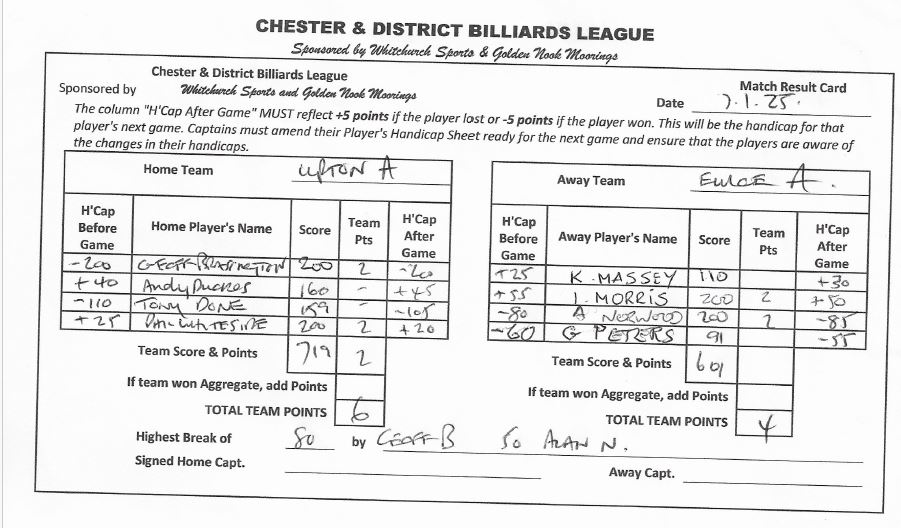 CHESTER & DISTRICT BILLIARDS LEAGUE
Sponsored by Whitchurch Sports & Golden Nook Moorings
Chester & District Billiards League
Sponsored by Whitchurch Sports and Golden Nook Moorings
Match Result Card
Date 7.1.25.
The column "H'Cap After Game" MUST reflect +5 points if the player lost or -5 points if the player won. This will be the handicap for that
player's next game. Captains must amend their Player's Handicap Sheet ready for the next game and ensure that the players are aware of
the changes in their handicaps.
Home Team UPTON A
H'Cap Before Game Home Player's Name Score Team Pts H'Cap After Game
-200 GEOFF 200 2
+40 Andy 160 - +45
-110 TONY DONE 159 - -105
+25 WHITESIDE 200 2 +20
Team Score & Points 719 2
If team won Aggregate, add Points
TOTAL TEAM POINTS 6
Away Team A.
H'Cap Before Game Away Player's Name Score Team Pts H'Cap After Game
+25 K. MASSEY 110 +30
+55 I. MORRIS 200 2 +50
-80 A NORWOOD 200 2 -85
-60 G PETERS 91 -55
Team Score & Points 601
If team won Aggregate, add Points
TOTAL TEAM POINTS 4
Highest Break of 80 by GEOFF B 50 ALAN N.
Signed Home Capt.
Away Capt.